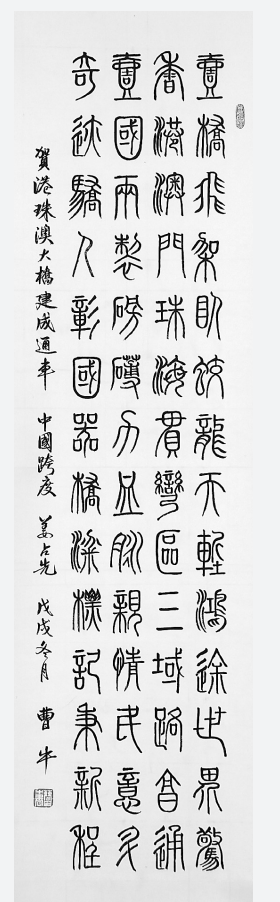 壹橋飛架臥蛟龍天塹鴻途世界驚
香港澳門珠海貫灣區三域路高通
壹國兩製磅礴力血脈親情民意
奇迹驕人彰國器橋梁記新程
賀港珠澳大橋建成通車 中國跨度 姜占先 戊戌冬月 曹牛